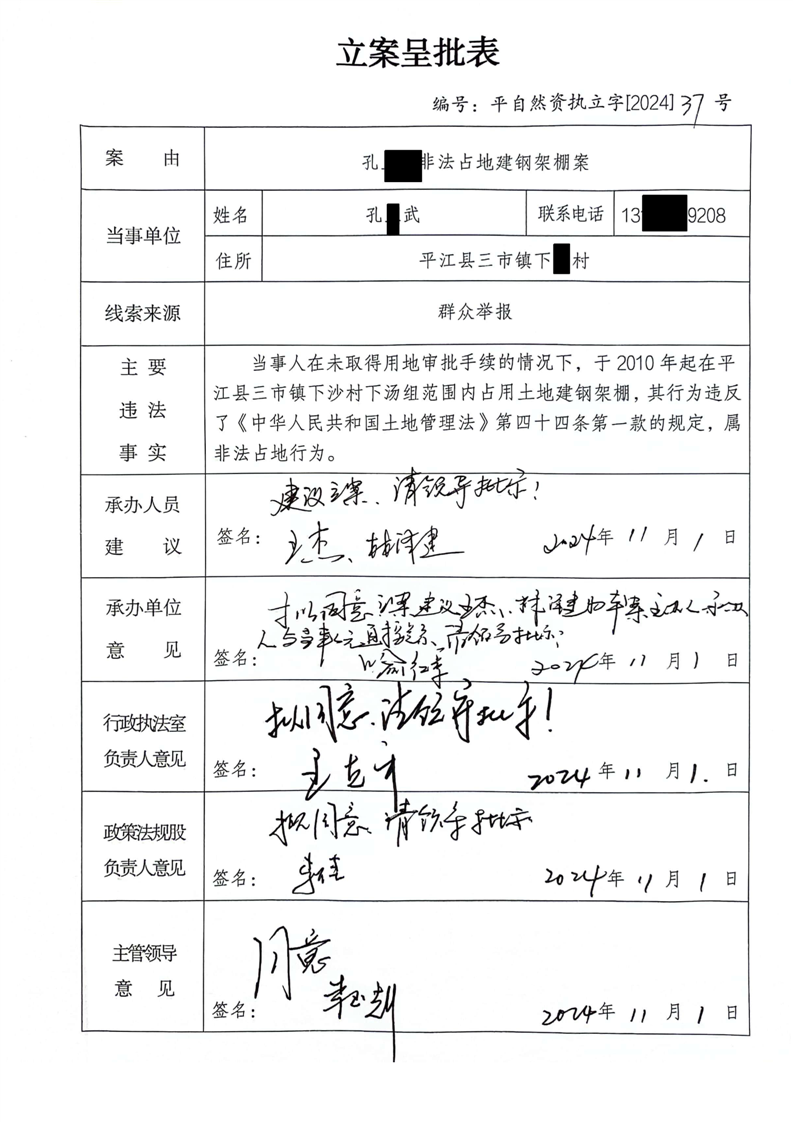 立案呈批表
编号：平自然资执立字[2024]37号
案 由
孔 非法占地建钢架棚案
当事单位
姓名
孔 武
联系电话
13 9208
住所
平江县三市镇下 村
线索来源
群众举报
主 要
违 法
事 实
当事人在未取得用地审批手续的情况下，于2010年起在平
江县三市镇下沙村下汤组范围内占用土地建钢架棚，其行为违反
了《中华人民共和国土地管理法》第四十四条第一款的规定，属
非法占地行为。
承办人员
建 议
建议立案、请领导批示！
签名：
王杰、林泽建
2024年11月1日
承办单位
意 见
拟同意立案建议王杰、林泽建为本案主办人
人与当事人无直接 请领导批示
签名：
2024年11月1日
行政执法室
负责人意见
拟同意、请领导批示！
签名：
2024年11月1日
政策法规股
负责人意见
拟同意 请领导批示
签名：
2024年11月1日
主管领导
意 见
同意
签名：
2024年11月1日